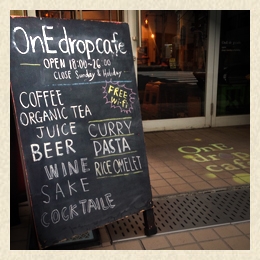 OnE drop cafe
OPEN 18:00~26:00
CLOSE Sunday & Holiday
FREE
Wi-Fi
COFFEE
ORGANIC TEA
JUICE
BEER
WINE
SAKE
COCKTAILE
CURRY
PASTA
RICE OMELET
OnE
drop
cafe